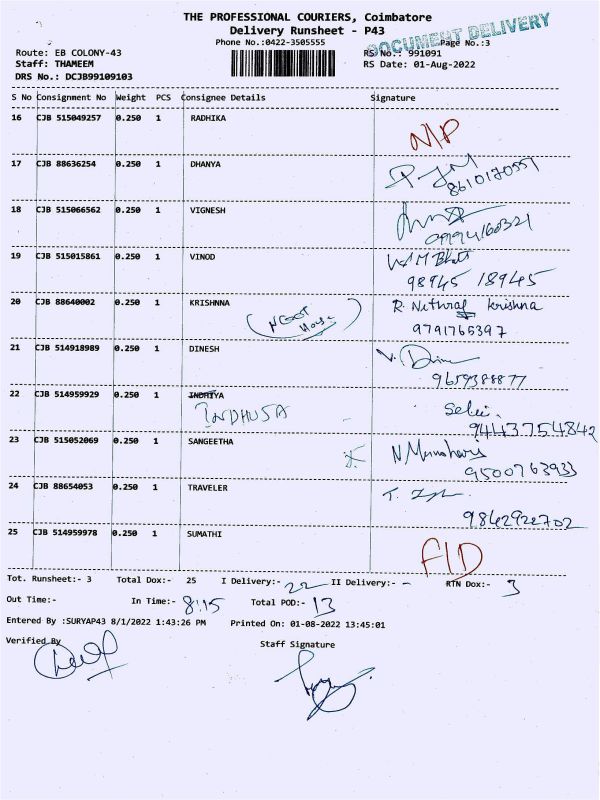 THE PROFESSIONAL COURIERS, Coimbatore
Delivery Runsheet - P43
DOCUMENT DELIVERY
Phone No.:0422-3505555
Page No.:3
Route: EB COLONY-43
RS No.: 991091
Staff: THAMEEM
RS Date: 01-Aug-2022
DRS No.: DCJB99109103
S No Consignment No Weight PCS Consignee Details Signature
16 CJB 515049257 0.250 1 RADHIKA
N/P
17 CJB 88636254 0.250 1 DHANYA
8610170551
18 CJB 515066562 0.250 1 VIGNESH
09994160321
19 CJB 515015861 0.250 1 VINOD
M Bhat
98945 18945
20 CJB 88640002 0.250 1 KRISHNNA
R. Nethraf krishna
(NEXT House)
9791765397
21 CJB 514918989 0.250 1 DINESH
9659388877
22 CJB 514959929 0.250 1 INDRIYA
INDHUSA
Selvi.
9443754842
23 CJB 515052069 0.250 1 SANGEETHA
9500763933
24 CJB 88654053 0.250 1 TRAVELER
9842922702
25 CJB 514959978 0.250 1 SUMATHI
F/D
Tot. Runsheet:- 3 Total Dox:- 25 I Delivery:- 22 II Delivery:- - RTN Dox:- 3
Out Time:- In Time:- 8:15 Total POD:- 13
Entered By :SURYAP43 8/1/2022 1:43:26 PM Printed On: 01-08-2022 13:45:01
Verified By
Staff Signature